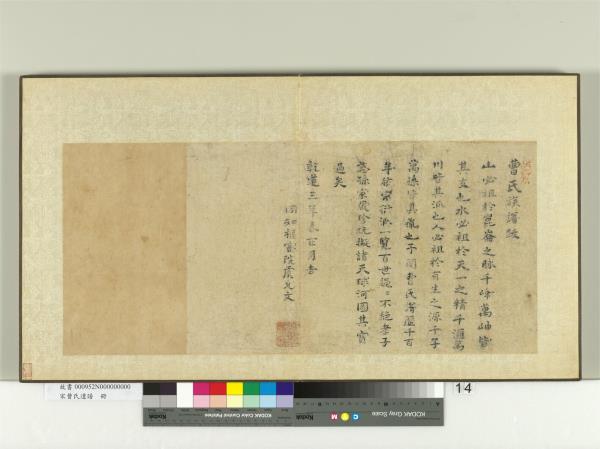 曹氏族譜跋
山必祖於崑崙之脉千峰萬岫皆
其支也水必祖於天一之精千滙萬
川皆其派也人必祖於有生之源千子
萬孫皆其胤也予閱曹氏譜歷千百
年於宗派一覽百世 不絶孝子
慈孫宗 珍 擬諸天球河圖其寶
過矣
乾道三年春正月吉
同知樞密院虞允文
故書 000952N000000000
宋曹氏遺譜 冊
KODAK Color Control Patches
KODAK Gray Scale
14